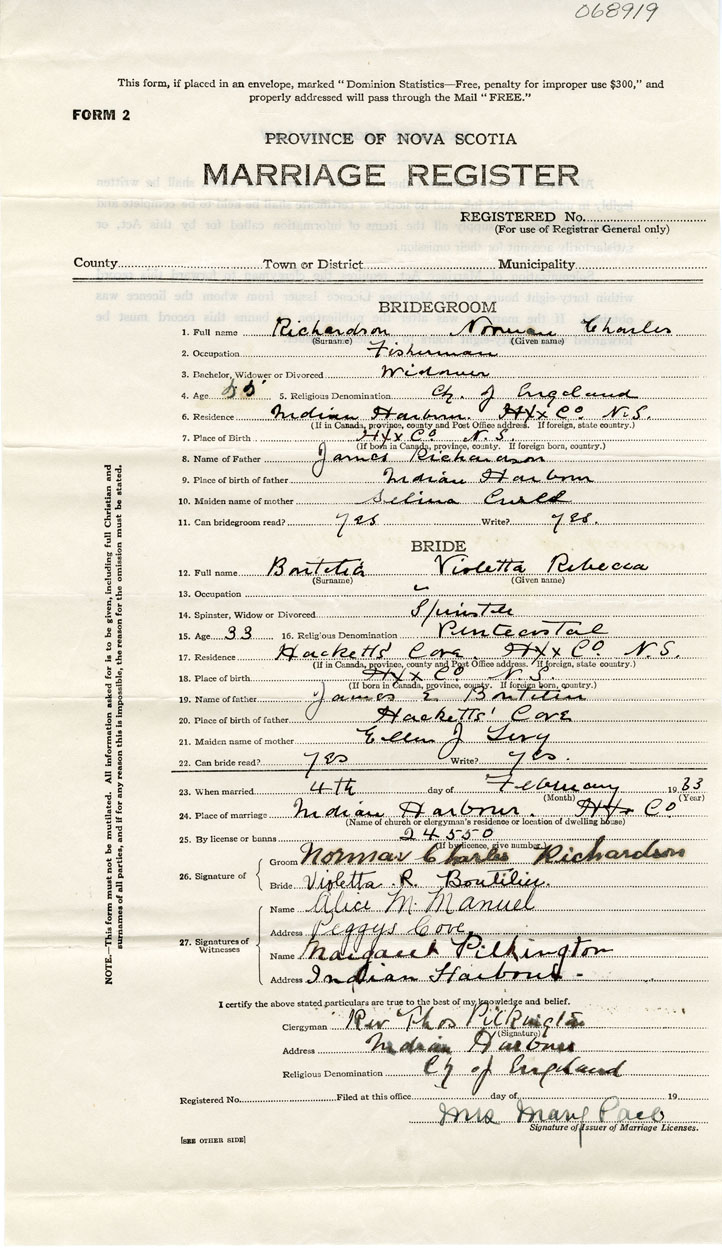 068919
This form, if placed in an envelope, marked "Dominion Statistics—Free, penalty for improper use $300," and
properly addressed will pass through the Mail "FREE."
FORM 2
PROVINCE OF NOVA SCOTIA
MARRIAGE REGISTER
REGISTERED No.
(For use of Registrar General only)
County Town or District Municipality
BRIDEGROOM
1. Full name Richardson Norman Charles
(Surname) (Given name)
2. Occupation Fisherman
3. Bachelor, Widower or Divorced Widower
4. Age 5. Religious Denomination Ch. of England
6. Residence Indian Harbour. Hfx Co. N.S.
(If in Canada, province, county and Post Office address. If foreign, state country.)
7. Place of Birth Hfx Co N.S.
(If born in Canada, province, county. If foreign born, country.)
8. Name of Father James Richardson
9. Place of birth of father Indian Harbour
10. Maiden name of mother Selina
11. Can bridegroom read? yes Write? yes.
BRIDE
12. Full name Boutilier Violetta Rebecca
(Surname) (Given name)
13. Occupation
14. Spinster, Widow or Divorced Spinster
15. Age 33 16. Religious Denomination Pentecostal
17. Residence Hacketts Cove. Hfx Co. N.S.
(If in Canada, province, county and Post Office address. If foreign, state country.)
18. Place of birth Hfx Co N.S.
(If born in Canada, province, county. If foreign born, country.)
19. Name of father James E Boutilier
20. Place of birth of father Hacketts' Cove
21. Maiden name of mother Ellen J Levy
22. Can bride read? yes Write? yes.
23. When married 4th day of February 1933
(Month) (Year)
24. Place of marriage Indian Harbour. Hfx Co
(Name of church or clergyman's residence or location of dwelling house)
25. By license or banns 24550
(If by licence, give number)
26. Signature of Groom Norman Charles Richardson
Bride Violetta R. Boutilier.
27. Signatures of Witnesses Name Alice M. Manuel
Address Peggys Cove
Name Margaret Pilkington
Address Indian Harbour -
I certify the above stated particulars are true to the best of my knowledge and belief.
Clergyman Rev Thos Pilkington
(Signature)
Address Indian Harbour
Religious Denomination Ch of England
Registered No. Filed at this office day of 19
Mrs Mary
Signature of Issuer of Marriage Licenses.
[SEE OTHER SIDE]
NOTE.—This form must not be mutilated. All information asked for is to be given, including full Christian and
surnames of all parties, and if for any reason this is impossible, the reason for the omission must be stated.